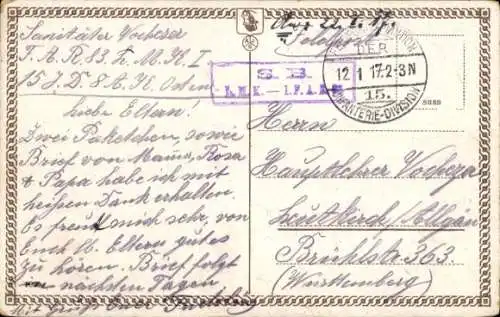 Sanitäter Vochezer
F.A.R. 83. L.M.K. I
15. J.D. 8 A.K. Osten
Liebe Eltern!
Zwei Paketchen, sowie
Brief von Mama, Rosa
& Papa habe ich mit
heißem Dank erhalten.
Es freut mich sehr, von
Euch lb. Eltern gutes
zu hören. Brief folgt
in nächsten Tagen.
Mit Gruß Euer
Feldpost
DER
12.1.17.2-3N
15.
INFANTERIE-DIVISION
S. B.
L.M.K. — I.F.A.R.
Herrn
Hauptlehrer Vochezer
Leutkirch/Allgäu
Brühlstr. 363.
(Württemberg)